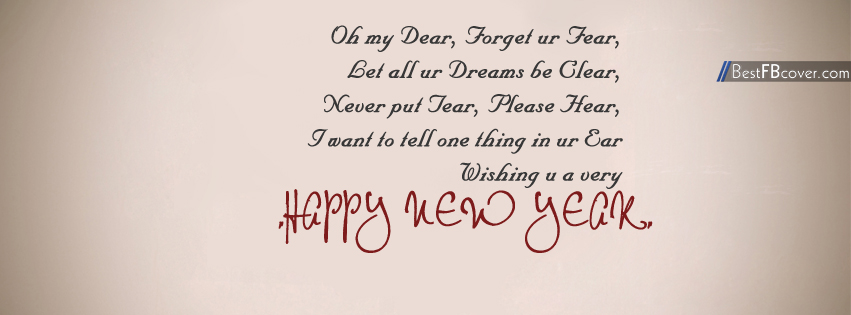 Oh my Dear, Forget ur Fear,
Let all ur Dreams be Clear,
Never put Tear, Please Hear,
I want to tell one thing in ur Ear
Wishing u a very
.HAPPY NEW YEAR.
BestFBcover.com